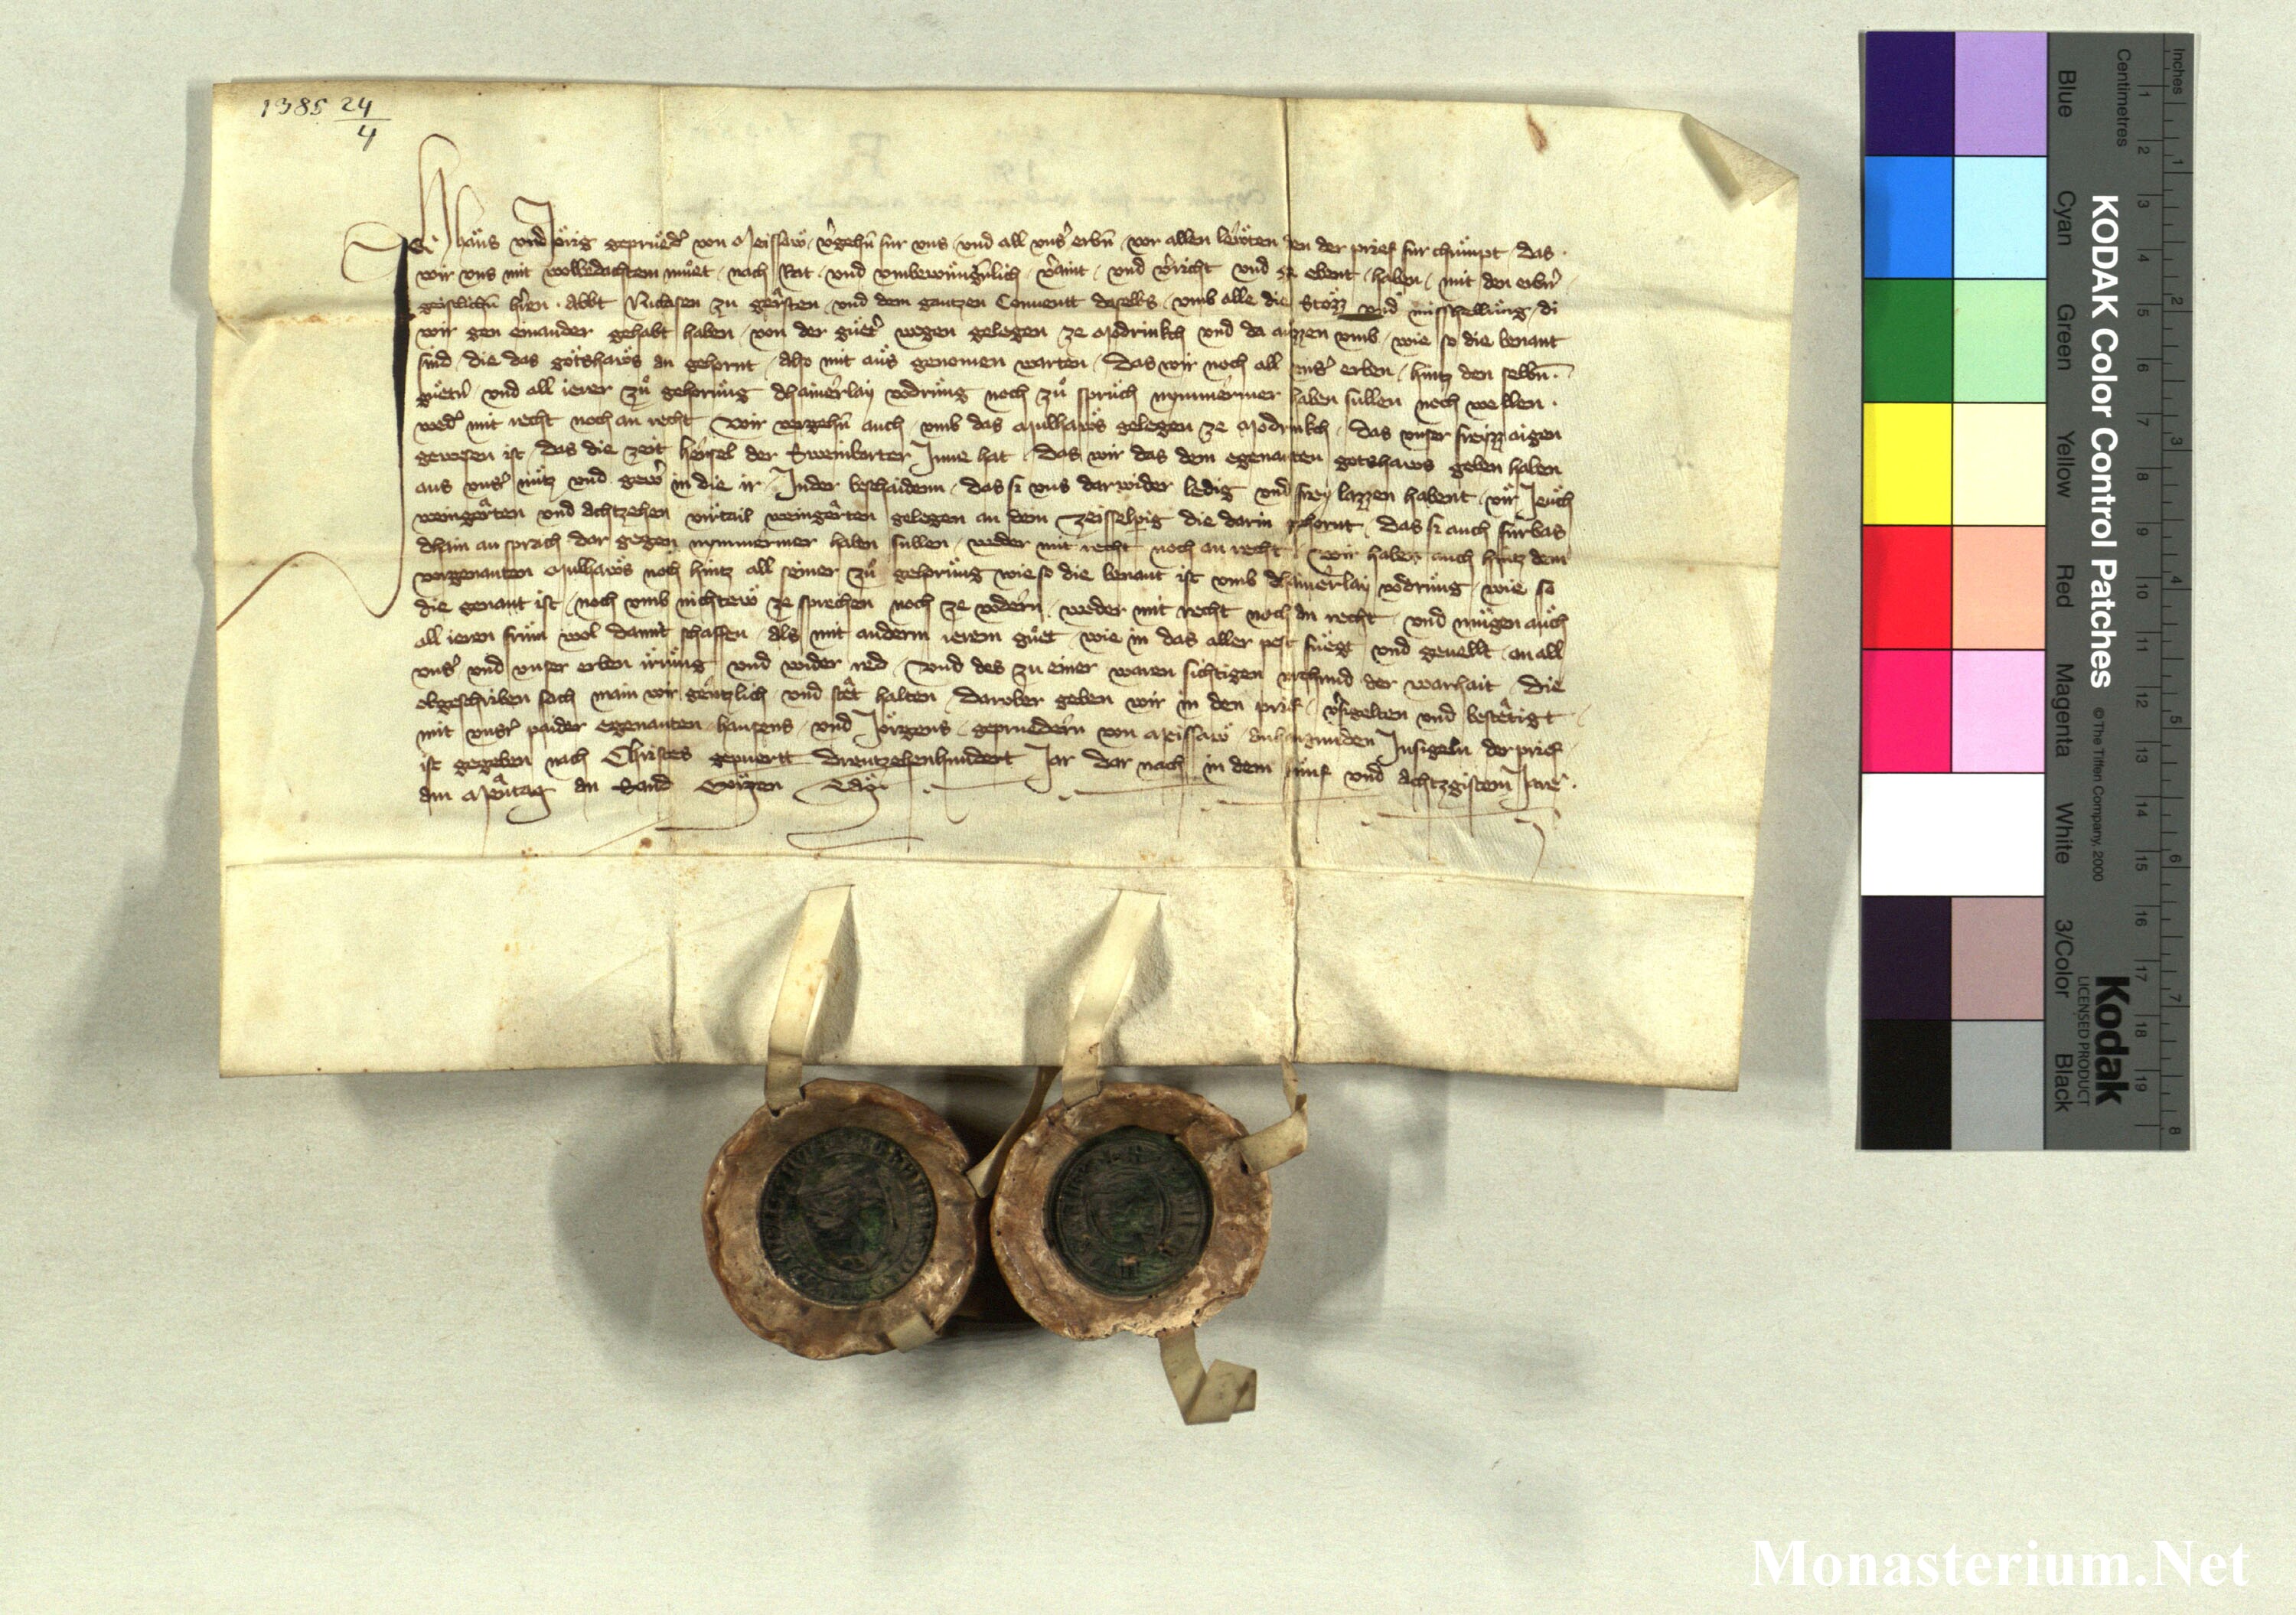 1385 24/4
Ich Hans und Jörig geprüder von Meissaw vergehen für uns und all unser erben vor allen lewten den der prief für chumpt das
wir uns mit wolbedachtem muet nach Rat und umbewungenlich veraint und verricht und ver ebent haben mit den erbern
geistlichn herren Abbt Niclasen zu Gersten und dem gantzen Conventt daselbs umb alle die Stözz und misshellung di
wir gen einander gehabt haben von der guetr wegen gelegen ze Modrinkch und da auzzen umb wie so die benant
sind die das gotshaws an gehornt also mit aus genomen warten das wir noch all unser erben hintz den selben
guetern und all ierer zu gehorung dhainerlay vodrung noch zu spruch nymmermer haben sullen noch wellen
weder mit recht noch an recht Wir vergehn auch umb das Mulhaws gelegen ze Modrinkch das unser freyz aigen
gewesen ist das die zeit Hensel der Inne hat das wir das dem egenanten gotshaws geben haben
aus unser nutz und gewer in die ir Inder beschaidenn das si uns darwider ledig und frey lazzen habent vir Jeuch
weingarten und achtzehen virtail weingarten gelegen an dem Zeisselperg die darin gehornt das si auch furbas
dhain an sprach dar gegen nymmermer haben sullen weder mit recht noch an recht Wir haben auch hintz dem
vorgenanten Mulhaws noch hintz all seiner zu gehorung wie so die benant ist umb dhainerlay vodrung wie so
die genant ist noch umb nichtew ze sprechen noch ze vodern weder mit recht noch an recht und mügen auch
all ieren frum wol damit schaffen als mit anderm ierem guet wie in das aller pest fuegt und gevellt an all
unser und unser erben irrung und wider red Und des zu einer waren sichtigen urchund der warhait die
obgeschriben sach main wir gentzlich und stet halten Darober geben wir in den prif versigelten und bestetigt
mit unser paider egenanten Hansens und Jörgens geprudern von Meissaw anhangunden Insigeln der prief
ist gegeben nach Christes gepuertt Dreutzehenhundert Jar dar nach in dem fünf und achtzgistem Jare
Am Mentag an Sand Görgen Tag
KODAK Color Control Patches
© The Tiffen Company, 2000
Kodak
LICENSED PRODUCT
Blue Cyan Green Yellow Red Magenta White 3/Color Black
Centimetres 1 2 3 4 5 6 7 8 9 10 11 12 13 14 15 16 17 18 19
Inches 1 2 3 4 5 6 7 8
Monasterium.Net